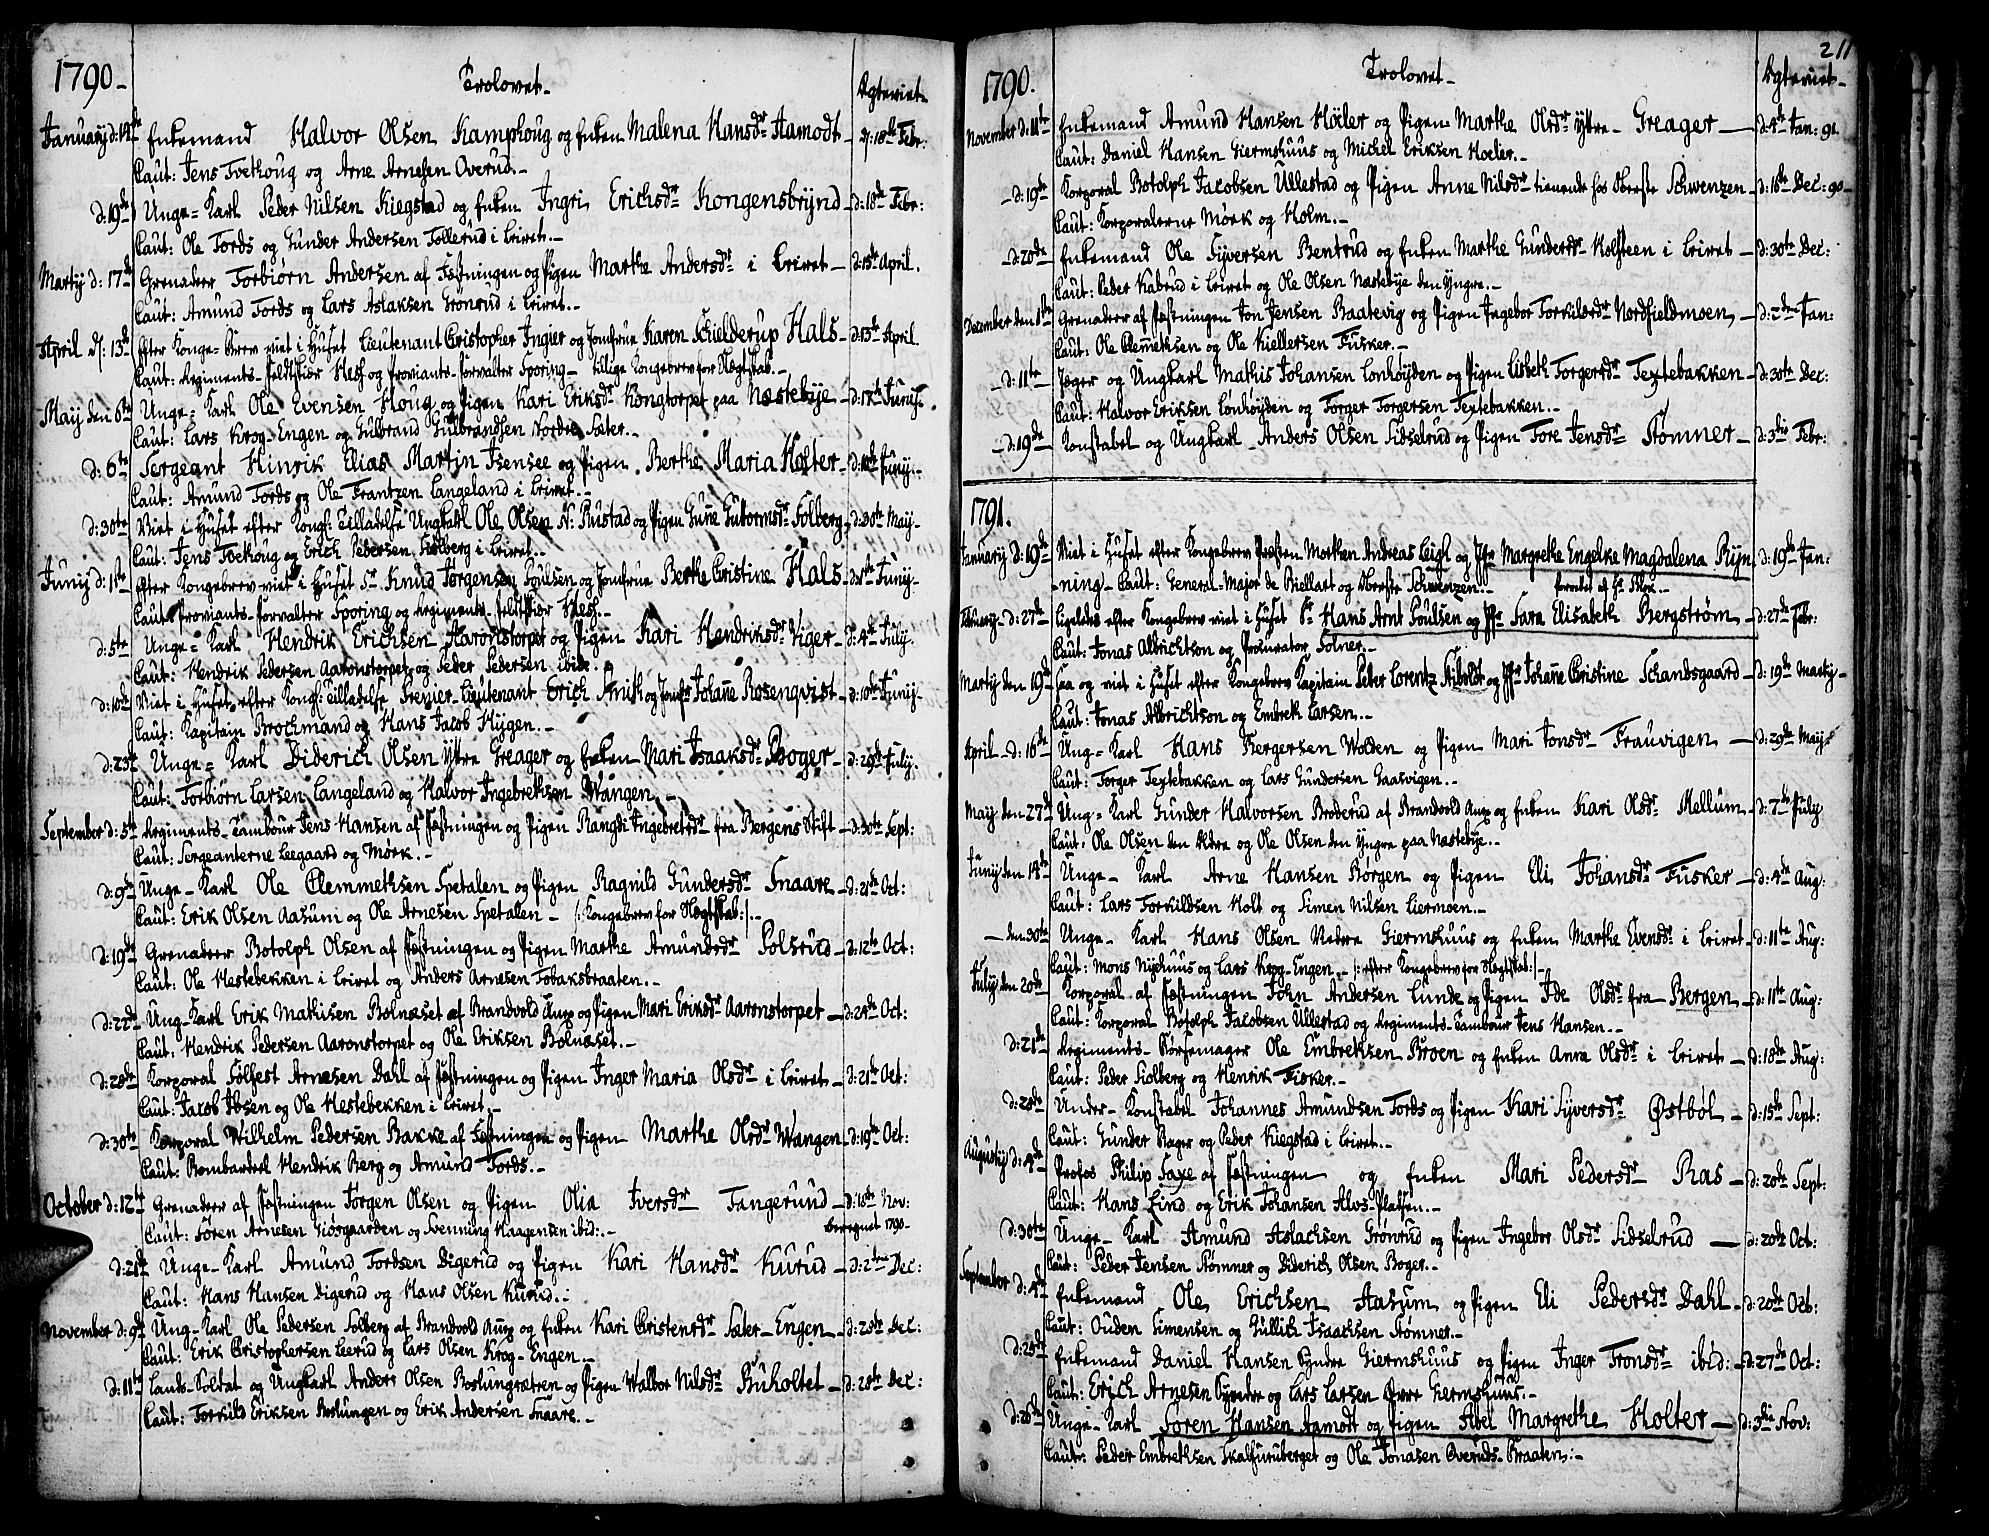 1790.
Trolovet.
Ægteviet.
January d: 12te Enkemand Halvor Olsen Kamphoug og Enken Malena Hansdr Aamodt d: 18de Febr:
Caut: Jens Tvekoug og Arne Arnesen Overud.
d: 19de Unge-Karl Peder Nilsen Kiegstad og Enken Ingri Erichsdr Kongensbrynd d: 18de Febr:
Caut: Ole Fords og Gunder Andersen Tollerud i Leiret.
Martij d: 17de Grenadeer Torbiørn Andersen af Fæstningen og Pigen Marthe Andersdr i Leiret d: 15de April.
Caut: Amund Fords og Lars Aslaksen Grønrud i Leiret.
April d: 13de Efter Konge-Brev viet i Huset Lieutenant Christopher Ingier og Jomfrue Karen Schielderup Hals d: 13de April
Caut: Regiments-Feldtskiær Hess og Proviants-Forvalter Sporing tillige Kongebrev for Slegtskab.
May den 6te Unge-Karl Ole Evensen Houg og Pigen Kari Eriksdr Kongtorpet paa Næstebye d: 17de Junij.
Caut: Lars Krog-Engen og Gulbrand Gulbrandsen Nordre Sæter.
d: 6te Sergeant Hinrik Elias Martin Isensee og Pigen Berthe Maria Holter d: 10de Junij.
Caut: Amund Fords og Ole Frantzen Langeland i Leiret.
d: 30te Viet i Huset efter Kongl: Tilladelse Ungkarl Ole Olsen N: Rustad og Pigen Gune Guttormsdr Solberg d: 30te May
Caut: Jens Tvekoug og Erich Pedersen Siolberg i Leiret.
Junij d: 1te Efter Kongebrev viet i Huset Sr Knud Jørgensen Poulsen og Jomfrue Berthe Christine Hals d: 1te Junij
Caut: Proviants-Forvalter Sporing og Regiments-Feldtskiær Hess.
d: 5te Unge-Karl Hendrik Erichsen Aaronstorpet og Pigen Kari Hendriksdr Viger d: 4de July.
Caut: Hendrik Pedersen Aaronstorpet og Peder Pedersen ibid.
d: 10de Viet i Huset efter Kongl: Tilladelse Premier-Lieutenant Erich Anith og Jomfr Johanne Rosenqvist d: 10de Junij
Caut: Kapitain Brochmand og Hans Jacob Hygen.
d: 23de Unge-Karl Diderich Olsen Ytre Greager og Enken Mari Isaaksdr Boger d: 29de July.
Caut: Torbiørn Larsen Langeland og Halvor Ingebretsen Wangen.
September d: 5te Regiments-Tambour Jens Hansen af Fæstningen og Pigen Rangdi Ingebretsdr fra Bergens Stift d: 30te Sept:
Caut: Sergeanterne Leegaard og Mørk.
d: 9de Unge-Karl Ole Clemmetsen Spetalen og Pigen Ragnild Gundersdr Snaare d: 21de Oct:
Caut: Erik Olsen Aasum og Ole Arnesen Spetallen /: Kongebrev for Slegtskab :/
d: 19de Grenadeer Botolph Olsen af Fæstningen og Pigen Marthe Amundsdr Polsrud d: 12te Oct:
Caut: Ole Hestebekken i Leiret og Anders Arnesen Tobaksbraaten.
d: 22de Ung-Karl Erik Mathisen Bolnæset af Brandvold Anx og Pigen Mari Eriksdr Aaronstorpet d: 24de Oct:
Caut: Hendrik Pedersen Aaronstorpet og Ole Eriksen Bolnæset.
d: 28de Korporal Solfest Arnesen Dahl af Fæstningen og Pigen Inger Maria Olsdr i Leiret d: 21de Oct:
Caut: Jacob Ibsen og Ole Hestebekken i Leiret.
d: 30te Korporal Wilhelm Pedersen Bakke af Fæstningen og Pigen Marthe Olsdr Wangen d: 19de Oct:
Caut: Bombarderl Hendrik Berg og Amund Fords.
October d: 12te Grenadeer af Fæstningen Jørgen Olsen og Pigen Olia Iversdr Tangerund d: 18de Nov:
Caut: Søren Arnesen Giosgaarden og Svenning Haagensen ibid: beregnet 1790
d: 21de Unge-Karl Amund Fordsen Digerud og Pigen Kari Hansdr Kurud d: 2den Dec:
Caut: Hans Hansen Digerud og Hans Olsen Kurud.
November d: 9de Ung-Karl Ole Pedersen Solberg af Brandvold Anx og Enken Kari Christensdr Sæter-Engen d: 28de Dec:
Caut: Erik Christophersen Leerud og Lars Olsen Krog-Engen.
d: 11te Lands-Soldat og Ungkarl Anders Olsen Boslungsætren og Pigen Walbor Nilsdr Buholtet d: 28de Dec:
Caut: Torkild Eriksen Boslungen og Erik Andersen Snaare.
211
1790.
Trolovet
Ægteviet
November d: 11te Enkemand Amund Hansen Hoeler og Pigen Marthe Olsdr Ytre Greager d: 4de Jan: 91.
Caut: Daniel Hansen Giermshuus og Michel Eriksen Hoeler.
d: 19de Korporal Botolph Jacobsen Ullestad og Pigen Anne Nilsdr tienende hos Oberste Schwenzen d: 16de Dec: 90
Caut: Korporalerne Mørk og Holm.
d: 20de Enkemand Ole Syversen Bentrud og Enken Marthe Gundersdr Holsteen i Leiret d: 30te Dec:
Caut: Peder Kabrud i Leiret og Ole Olsen Næstebye den Yngre.
December den 1te Grenadeer af Fæstningen Jon Jensen Baatevig og Pigen Ingebor Torkildsdr Nordfieldmoen d: 2den Jan:
Caut: Ole Clemmetsen og Ole Kiellersen Fusker.
d: 11te Jæger og Ungkarl Mathis Johansen Lonhøyden og Pigen Lisbeth Torgersdr Textebakken d: 30te Dec:
Caut: Halvor Eriksen Lonhøyden og Torger Torgersen Textebakken.
d: 19de Konstabel og Ungkarl Anders Olsen Sidselrud og Pigen Tore Jensdr Stømner d: 3die Febr:
1791.
January d: 19de Viet i Huset efter Kongebrev Præsten Morthen Andreas Leigl og Jfr Margrethe Engelke Magdalena Ryn d: 19de Jan:
ning Caut: General-Major de Biellart og Oberste Schwenzen. forrettet af Hr Stkn.
d: 27de Ligeledes efter Kongebrev viet i Huset Sr Hans Arnt Poulsen og Jfr Sara Elisabeth Bergstrøm d: 27de Febr:
Caut: Jonas Albrichtson og Procurator Solner.
Martij den 19de Saa og viet i Huset efter Kongebrev Kapitain Peter Lorentz Fiboldt og Jfr Johanne Christine Schandsgaard d: 19de Martij
Caut: Jonas Albrichtson og Embrek Larsen.
April d: 16de Ung-Karl Hans Bergersen Wolden og Pigen Mari Jonsdr Frauvigen d: 29de May
Caut: Torger Textebakken og Lars Gundersen Gaasvigen.
May den 27de Ung-Karl Gunder Halvorsen Broderud af Brandvold Anx og Enken Kari Olsdr Mellum d: 7de July
Caut: Ole Olsen den Ældre og Ole Olsen den Yngre paa Næstebye.
Junij den 18de Unge-Karl Arne Hansen Børgen og Pigen Eli Johansdr Fusker d: 4de Aug:
Caut: Lars Torkildsen Holt og Simen Nilsen Liermoen.
den 30te Unge-Karl Hans Olsen Nedre Giermshuus og Enken Marthe Evensdr i Leiret d: 11te Aug:
Caut: Mons Nyehuus og Lars Krog-Engen /: efter Kongebrev for Slegtskab :/
Julij den 20de Korporal af Fæstningen John Andersen Lunde og Pigen Ide Olsdr fra Bergen d: 11te Aug:
Caut: Korporal Botolph Jacobsen Ullestad og Regiments-Tambour Jens Hansen.
d: 21de Regiments-Børsemager Ole Embrektsen Broen og Enken Anna Olsdr i Leiret d: 18de Aug:
Caut: Peder Siolberg og Henrik Fisker.
d: 28de Under-Konstabel Johannes Amundsen Fords og Pigen Kari Syversdr Østbøl d: 15de Sept:
Caut: Gunder Rager og Peder Kiegstad i Leiret.
Augusty d: 4de Profos Philip Saxe af Fæstningen og Enken Mari Pedersdr Ras d: 20de Sept:
Caut: Hans Lind og Erik Johansen Alvs-Pladsen.
d: 30te Unge-Karl Amund Aslachsen Grønrud og Pigen Ingebor Olsdr Sidselrud d: 20de Oct:
Caut: Peder Jensen Stømner og Diderich Olsen Boger.
September d: 4de Enkemand Ole Erichsen Aasum og Pigen Eli Pedersdr Dahl d: 20de Oct:
Caut: Ouden Simensen og Gullich Isaachsen Stømner.
d: 25de Enkemand Daniel Hansen Syndre Giermshuus og Pigen Inger Tronsdr ibid: d: 27de Oct:
Caut: Erich Arnesen Syndre og Lars Larsen Øvre Giermshuus.
d: 26de Unge-Karl Søren Hansen Aamodt og Pigen Abel Margrethe Holter d: 3die Nov:
Caut: Peder Embrethsen Skalfuruberget og Ole Jonasen Overuds-Braaten.